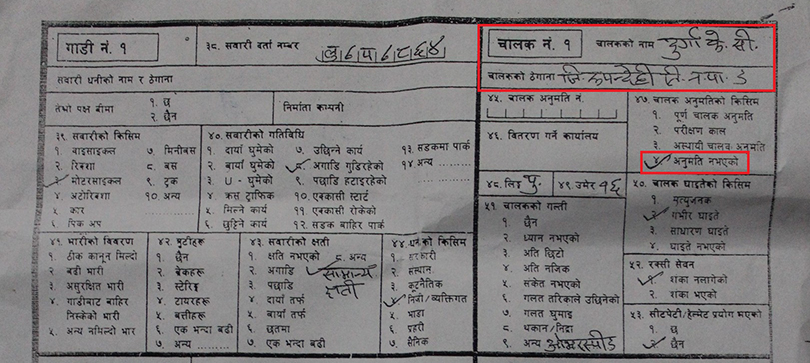 गाडी नं. १
३८. सवारी दर्ता नम्बर
चालक नं. १
चालकको नाम दुर्गा के. सी.
सवारी धनीको नाम र ठेगाना
चालकको ठेगाना जि. रुपन्देही ति न पा ड
तेश्रो पक्ष बीमा
१. छ
२. छैन
निर्माता कम्पनी
४५. चालक अनुमति नं.
४६. वितरण गर्ने कार्यालय
४७. चालक अनुमतिको किसिम
१. पूर्ण चालक अनुमति
२. परीक्षण काल
३. अस्थायी चालक अनुमति
४. अनुमति नभएको
३९. सवारीको किसिम
१. बाइसाइकल
२. रिक्शा
३. मोटरसाइकल
४. अटोरिक्शा
५. कार
६. पिक अप
७. मिनीबस
८. बस
९. ट्रक
१०. अन्य
४०. सवारीको गतिविधि
१. दायाँ घुमेको
२. बायाँ घुमेको
३. U - घुमेको
४. क्रस ट्राफिक
५. मिल्ने कार्य
६. छुट्टिने कार्य
७. उछिन्ने कार्य
८. अगाडि गुडिरहेको
९. पछाडि हटाइरहेको
१०. एक्कासी स्टार्ट
११. एक्कासी रोकेको
१२. सडक बाहिर पार्क
१३. सडकमा पार्क
१४. अन्य
४८. लिङ्ग पु.
४९. उमेर १६
५०. चालक घाइतेको किसिम
१. मृत्युजनक
२. गंभीर घाइते
३. साधारण घाइते
४. घाइते नभएको
५१. चालकको गल्ती
१. छैन
२. ध्यान नभएको
३. अति छिटो
४. अति नजिक
५. संकेत नभएको
६. गलत तरिकाले उछिनेको
७. गलत घुमाइ
८. थकान / निद्रा
९. अन्य ओभरस्पीड
४१. भारीको विवरण
१. ठीक कानून मिल्दो
२. बढी भारी
३. असुरक्षित भारी
४. गाडीबाट बाहिर
निस्केको भारी
५. अन्य नमिल्दो भार
४२. त्रुटीहरू
१. छैन
२. ब्रेकहरू
३. स्टेरिङ्ग
४. टायरहरू
५. बत्तीहरू
६. एक भन्दा बढी
७. अन्य
४३. सवारीको क्षती
१. क्षति नभएको
२. अगाडि
३. पछाडि
४. दायाँ तर्फ
५. बायाँ तर्फ
६. छतमा
७. एक भन्दा बढी
८. अन्य
सामान्य
क्षती
४४. धनको किसिम
१. सरकारी
२. संस्थान
३. कूटनैतिक
४. निजी / व्यक्तिगत
५. भाडा
६. प्रहरी
७. सैनिक
५२. रक्सी सेवन
१. शंका नलागेको
२. शंका भएको
५३. सीटपेटी / हेल्मेट प्रयोग भएको
१. छ
२. छैन